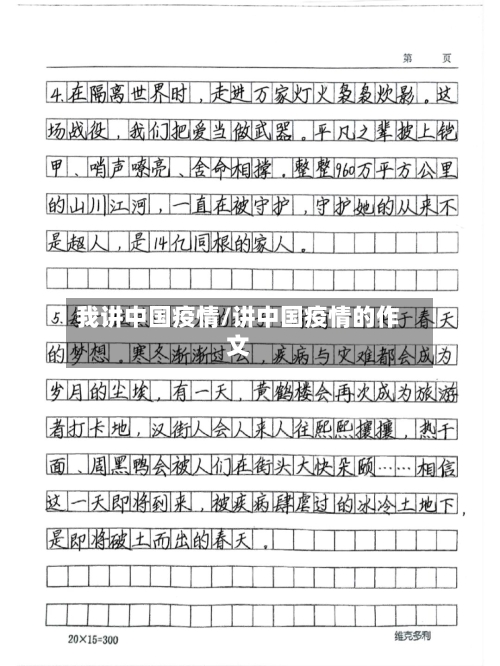 第 页
4.在隔离世界时，走进万家灯火袅袅炊影。这
场战役，我们把爱当做武器。平凡之辈披上铠
甲、哨声嘹亮、舍命相撑。整整960万平方公里
的山川江河，一直在被守护，守护她的从来不
是超人，是14亿同根的家人。
5.
于春天
我讲中国疫情/讲中国疫情的作
文
的梦想。寒冬渐渐过去，疾病与灾难都会成为
岁月的尘埃，有一天，黄鹤楼会再次成为旅游
者打卡地，汉街人会人来人往熙熙攘攘，热干
面、周黑鸭会被人们在街头大快朵颐……相信
这一天即将到来，被疾病肆虐过的冰冷土地下，
是即将破土而出的春天。
20×15=300
维克多利